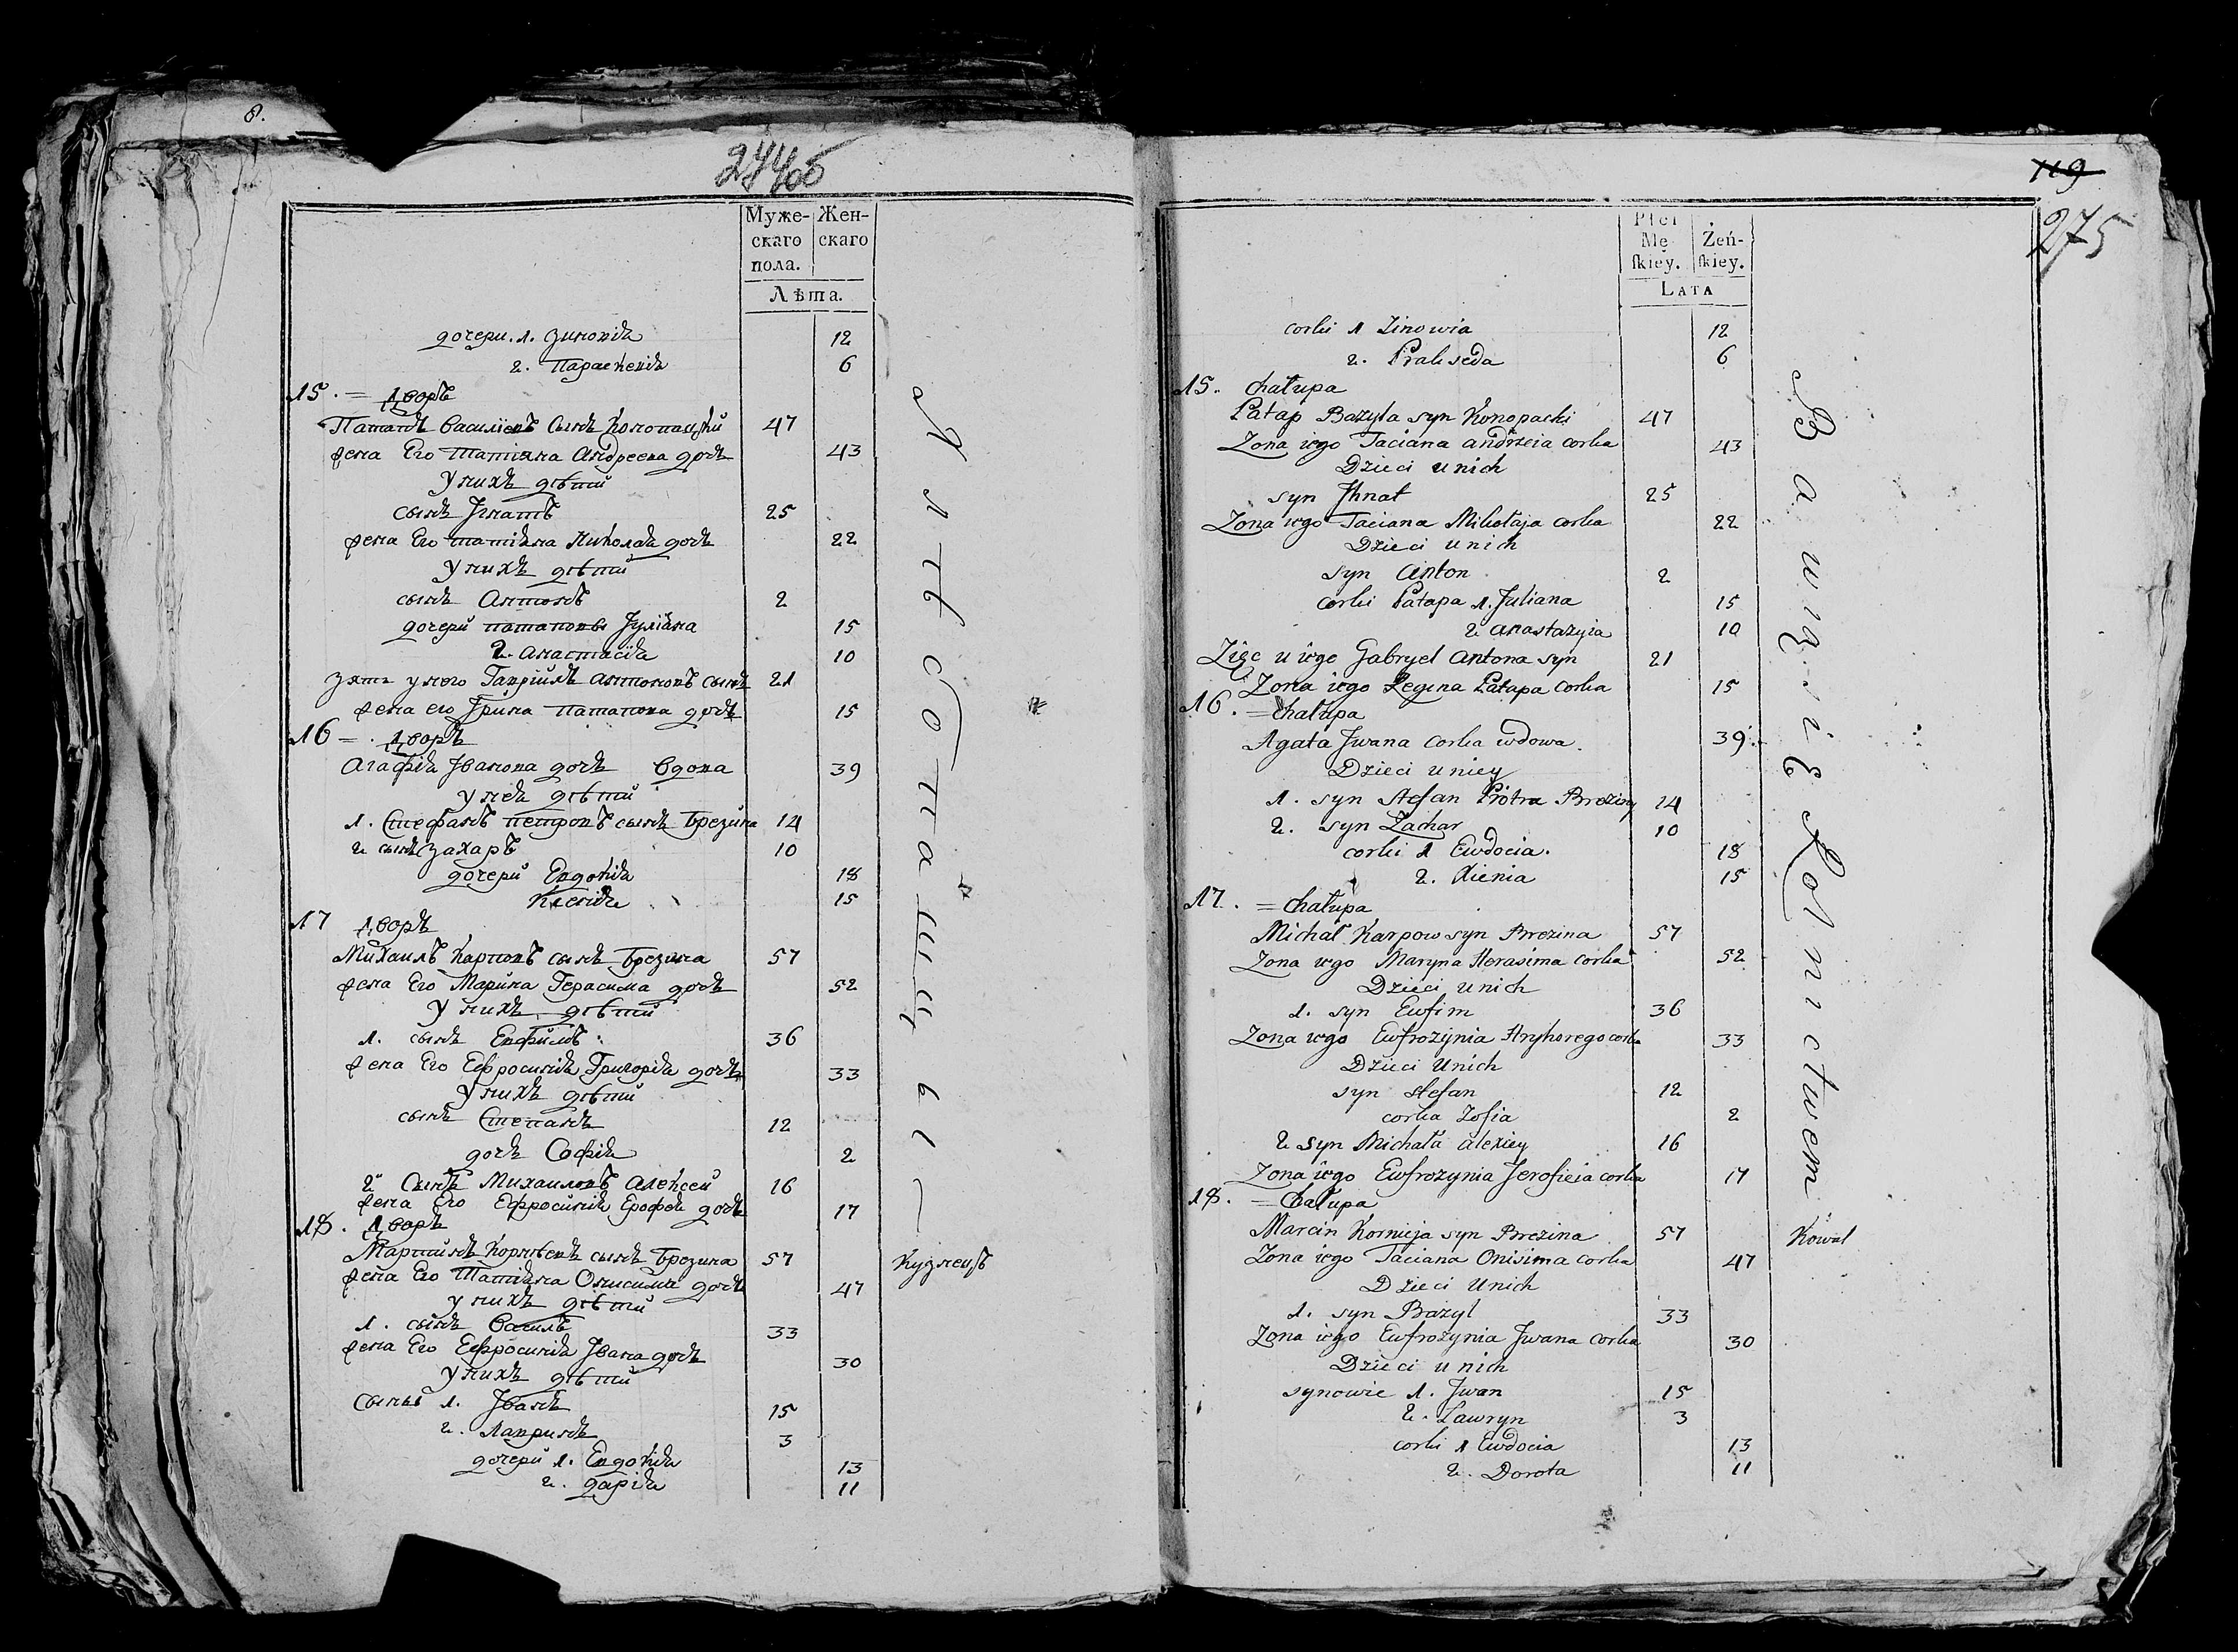 8.
274об
Муже-скаго пола. Жен-скаго
Лѣта.
дочери. 1. Зиновiя 12
2. Параскевiя 6
15. = Дворъ
Патапъ Василiевъ сынъ Конопацкiй 47
жена Его Татiяна Андреева дочь 43
У нихъ дѣти
сынъ Iгнатъ 25
жена Его татiяна Николая дочь 22
У нихъ дѣти
сынъ Антонъ 2
дочери патаповы Iулiяна 15
2. анастасiя 10
зять у него Гаврiилъ антоновъ сынъ 21
жена его Iрина патапова дочь 15
16 = . Дворъ
Агафiя Iванова дочь вдова 39
у нея дѣти
1. Стефанъ петровъ сынъ Брезина 14
2 сынъ захаръ 10
дочери Евдокiя 18
Ксенiя 15
17 Дворъ
Михаилъ Карповъ сынъ брезина 57
жена Его Марина Герасима дочь 52
У нихъ дѣти
1. сынъ Евфимъ 36
жена Его Ефросинiя Григорiя дочь 33
У нихъ дѣти
сынъ Степанъ 12
дочь Софiя 2
2й Сынъ Михаиловъ алексей 16
жена Его Ефросинiя Ерофея дочь 17
18. Дворъ
Мартинъ Корнѣевъ сынъ брезина 57 Кузнецъ
жена Его Татiяна Онисима дочь 47
у нихъ дѣти
1. сынъ Василь 33
жена Его Ефросинiя Iвана дочь 30
У нихъ дѣти
сыны 1. Iванъ 15
2. Лавринъ 3
дочери 1. Евдокiя 13
2. дарiя 11
119
275
Płci Mę-skiey. Żeń-skiey.
LATA
corki 1 Zinowia 12
2. Prakseda 6
15. chałupa
Patap Bazyla syn Konopacki 47
Zona iego Taciana andrzeia corka 43
Dzieci u nich
syn Jhnat 25
Zona iego Taciana Mikołaja corka 22
Dzieci u nich
syn Anton 2
corki Patapa 1. Juliana 15
2 anastazyia 10
Zięc u iego Gabryel Antona syn 21
Zona iego Regina Patapa corka 15
16. = Chałupa
Agata Jwana corka wdowa. 39
Dzieci u niey
1. syn Stefan Piotra Breziny 14
2. syn Zachar 10
corki 1 Ewdocia. 18
2. Xienia 15
17. = Chałupa
Michał Karpow syn Brezina 57
Zona iego Maryna Herasima corka 52
Dzieci u nich
1. syn Ewfim 36
Zona iego Ewfrozynia Hryhorego corka 33
Dzieci Unich
syn Stefan 12
corka Zofia 2
2 syn Michała alexiey 16
Zona iego Ewfrozynia Jerofieia corka 17
18. = Chałupa
Marcin Kornieja syn Brezina 57 Kowal
Zona iego Taciana Onisima corka 47
Dzieci Unich
1. syn Bazyl 33
Zona iego Ewfrozynia Jwana corka 30
Dzieci u nich
synowie 1. Jwan 15
2. Lawryn 3
corki 1 Ewdocia 13
2. Dorota 11
Bawią się Rolnictwem